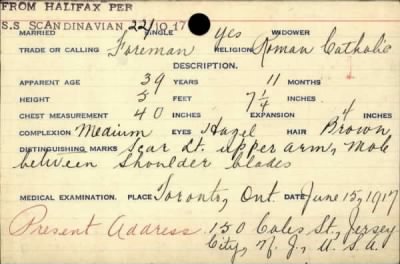 FROM HALIFAX PER
S.S SCANDINAVIAN 22/10.17
MARRIED SINGLE Yes WIDOWER
TRADE OR CALLING Foreman RELIGION Roman Catholic
DESCRIPTION.
APPARENT AGE 39 YEARS 11 MONTHS
HEIGHT 5 FEET 7 1/4 INCHES.
CHEST MEASUREMENT 40 INCHES EXPANSION 4 INCHES
COMPLEXION Medium EYES Hazel HAIR Brown
DISTINGUISHING MARKS Scar Lt. upper arm, Mole
between shoulder blades
MEDICAL EXAMINATION. PLACE Toronto, Ont. DATE June 15, 1917
Present Address 150 Coles St., Jersey
City, N. J., U. S. A.